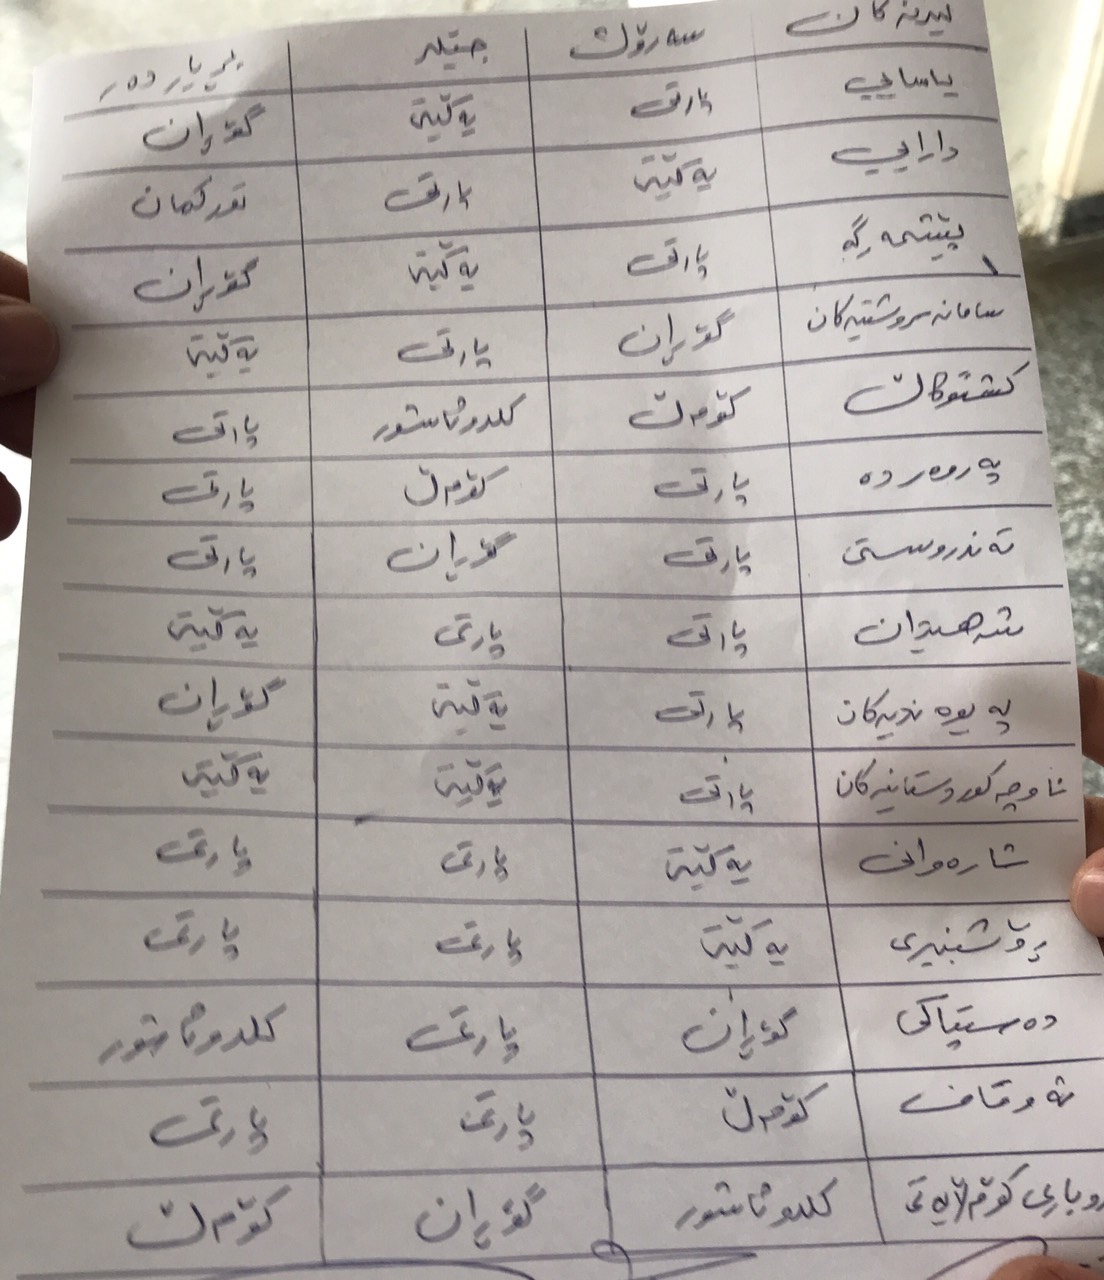 لیژنەکان سەرۆک جێگر بڕیاردەر
یاسایی پارتی یەکێتی گۆڕان
دارایی یەکێتی پارتی تورکمان
پێشمەرگە پارتی یەکێتی گۆڕان
سامانە سروشتیەکان گۆڕان پارتی یەکێتی
کشتوکاڵ کۆمەڵ کلدوئاشور پارتی
پەروەردە پارتی کۆمەڵ پارتی
تەندروستی پارتی گۆڕان پارتی
شەهیدان پارتی پارتی یەکێتی
پەیوەندیەکان پارتی یەکێتی گۆڕان
ناوچە کوردستانیەکان پارتی یەکێتی یەکێتی
شارەوانی یەکێتی پارتی پارتی
ڕۆشنبیری یەکێتی پارتی پارتی
دەستپاکی گۆڕان پارتی کلدوئاشور
ئەوقاف کۆمەڵ پارتی پارتی
کۆمەڵایەتی کلدوئاشور گۆڕان کۆمەڵ